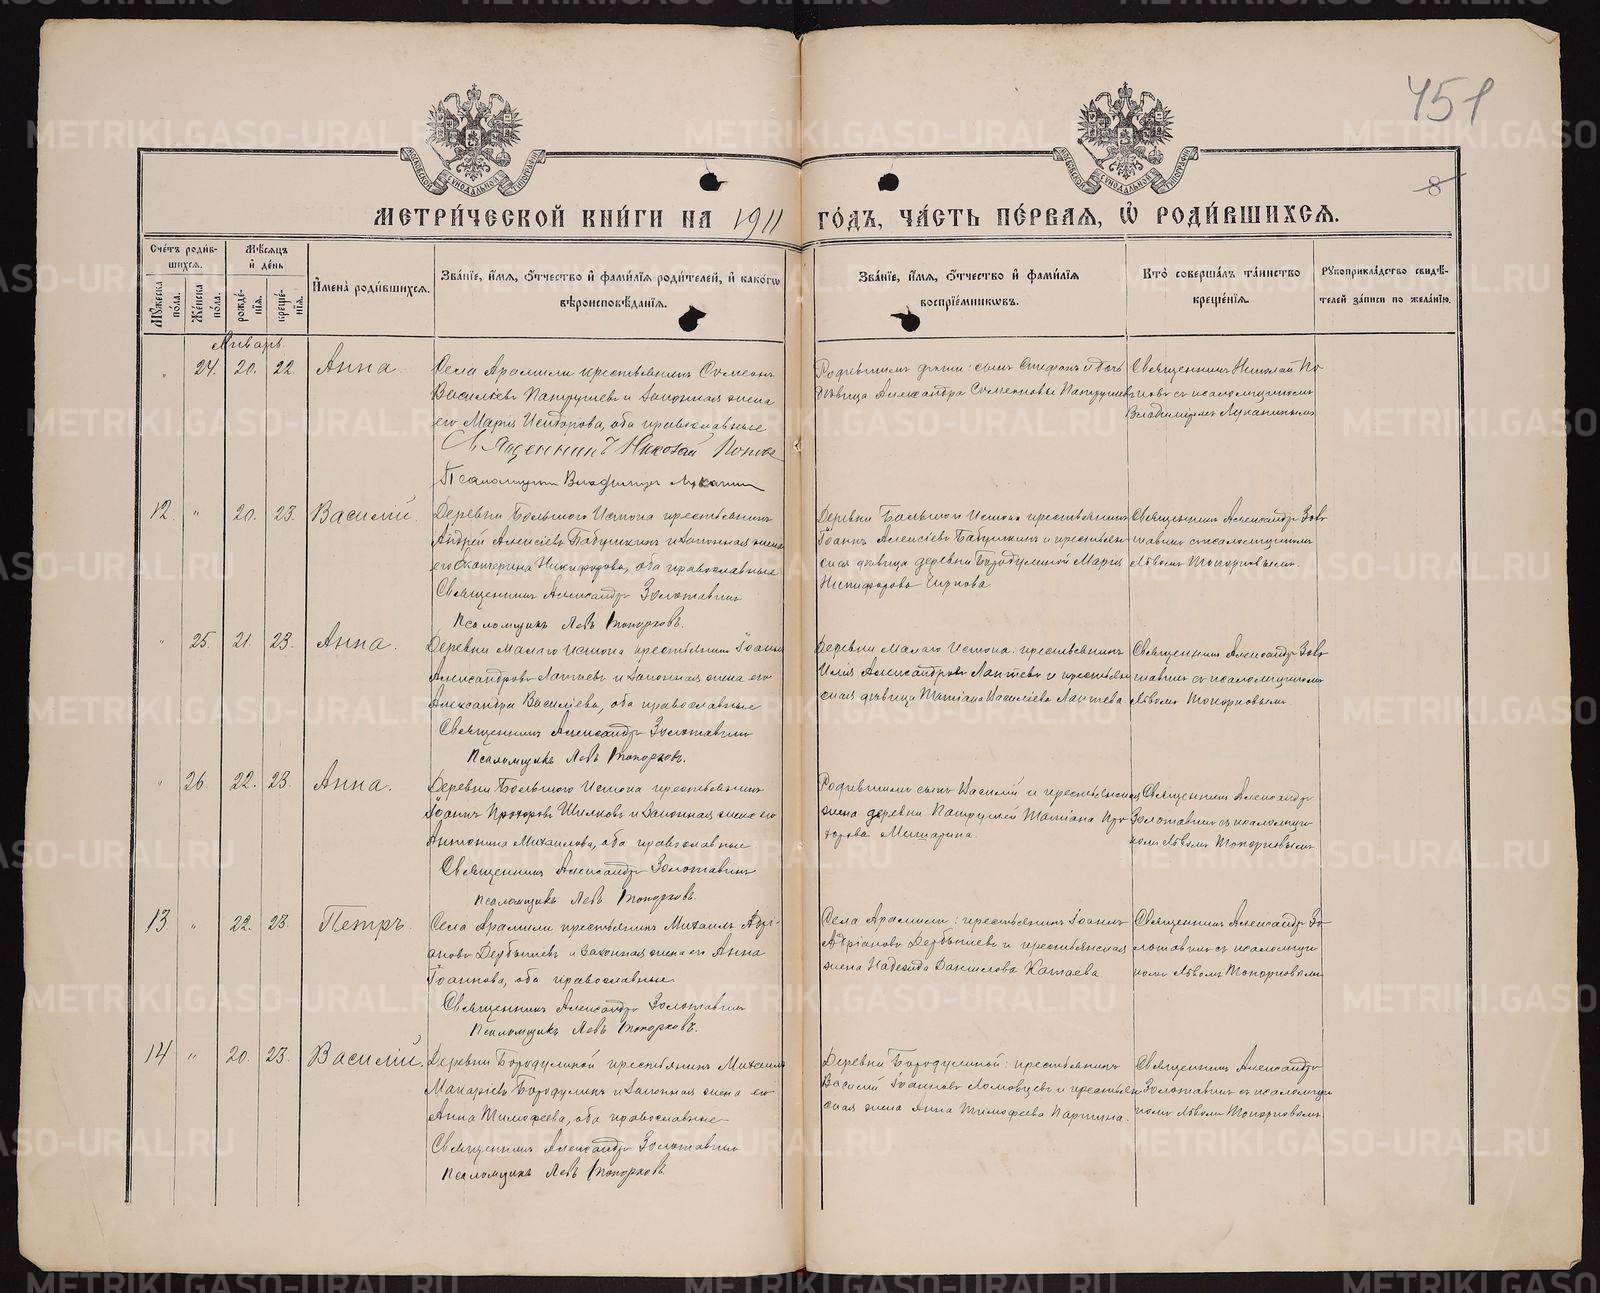 451
8
МОСКОВСКОЙ СѴНОДАЛЬНОЙ ТИПОГРАФІИ
МОСКОВСКОЙ СѴНОДАЛЬНОЙ ТИПОГРАФІИ
МЕТРИ́ЧЕСКОЙ КНИ́ГИ НА 1911 ГО́ДЪ, ЧА́СТЬ ПЕ́РВАЯ, Ѡ РОДИ́ВШИХСЯ.
Сче́тъ роди́в-
шихся.
Мꙋ́жеска по́ла.
Же́нска по́ла.
Мѣ́сяцъ
и҆ де́нь
рожде́-
нїя.
креще́-
нїя.
И҆мена̀ роди́вшихся.
Зва́нїе, и҆́мя, ѻ҆́тчество и҆ фами́лїя роди́телей, и҆ како́гѡ
вѣроисповѣ́данїя.
Зва́нїе, и҆́мя, ѻ҆́тчество и҆ фами́лїя
воспрїе́мникѡвъ.
Кто̀ соверша́лъ та́инство
креще́нїя.
Рꙋкоприкла́дство свидѣ́-
телей за́писи по жела́нїю.
Январь.
" 24. 20. 22 Анна.
Села Арамили крестьянинъ Симеонъ
Васильевъ Патрушевъ и законная жена
его Марія Исидорова, оба православные
Священникъ Николай Поповъ
Псаломщикъ Владимиръ Луканинъ
Родившейся дѣти: сынъ Стефанъ и дочь
дѣвица Александра Симеоновы Патрушевы
Священникъ Николай По-
повъ съ псаломщикомъ
Владимиромъ Луканинымъ
12. " 20. 23. Василій.
Деревни Большого Истока крестьянинъ
Андрей Алексіевъ Бабушкинъ и законная жена
его Екатерина Никифорова, оба православные
Священникъ Александръ Золотавинъ
Псаломщикъ Левъ Топорковъ.
Деревни Большого Истока крестьянинъ
Іоаннъ Алексіевъ Бабушкинъ и крестьян-
ская дѣвица деревни Бородулиной Марія
Никифорова
Священникъ Александръ Золо-
тавинъ съ псаломщикомъ
Львомъ Топорковымъ.
" 25. 21. 23. Анна.
Деревни Малаго Истока крестьянинъ Іоаннъ
Александровъ Лаптевъ и законная жена его
Александра Василіева, оба православные
Священникъ Александръ Золотавинъ
Псаломщикъ Левъ Топорковъ.
Деревни Малаго Истока: крестьянинъ
Илія Александровъ Лаптевъ и крестьян-
ская дѣвица Татіана Василіева Лаптева
Священникъ Александръ Золо-
тавинъ съ псаломщикомъ
Львомъ Топорковымъ.
" 26. 22. 23. Анна.
Деревни Большого Истока крестьянинъ
Іоаннъ Прохоровъ и законная жена его
Антонина Михаилова, оба православные
Священникъ Александръ Золотавинъ
Псаломщикъ Левъ Топорковъ.
сынъ Василій и крестьянская
жена деревни Патрушей Татіана Про-
хорова Мишарина.
Священникъ Александръ
Золотавинъ съ псаломщи-
комъ Львомъ Топорковымъ
13. " 22. 23. Петръ.
Села Арамили крестьянинъ Михаилъ Адрі-
ановъ Дербышевъ и законная жена его Анна
Іоаннова, оба православные
Священникъ Александръ Золотавинъ
Псаломщикъ Левъ Топорковъ.
Села Арамили: крестьянинъ Іоаннъ
Адріановъ Дербышевъ и крестьянская
жена Надежда Данилова Катаева
Священникъ Александръ Зо-
лотавинъ съ псаломщи-
комъ Львомъ Топорковымъ
14 " 20. 23. Василій.
Деревни Бородулиной крестьянинъ Михаилъ
Макаріевъ Бородулинъ и законная жена его
Анна Тимофеева, оба православные
Священникъ Александръ Золотавинъ
Псаломщикъ Левъ Топорковъ
Деревни Бородулиной: крестьянинъ
Василій Іоанновъ Ломовцевъ и крестьян-
ская жена Анна Тимофеева Паргина.
Священникъ Александръ
Золотавинъ съ псаломщи-
комъ Львомъ Топорковымъ.
METRIKI.GASO-URAL.RU